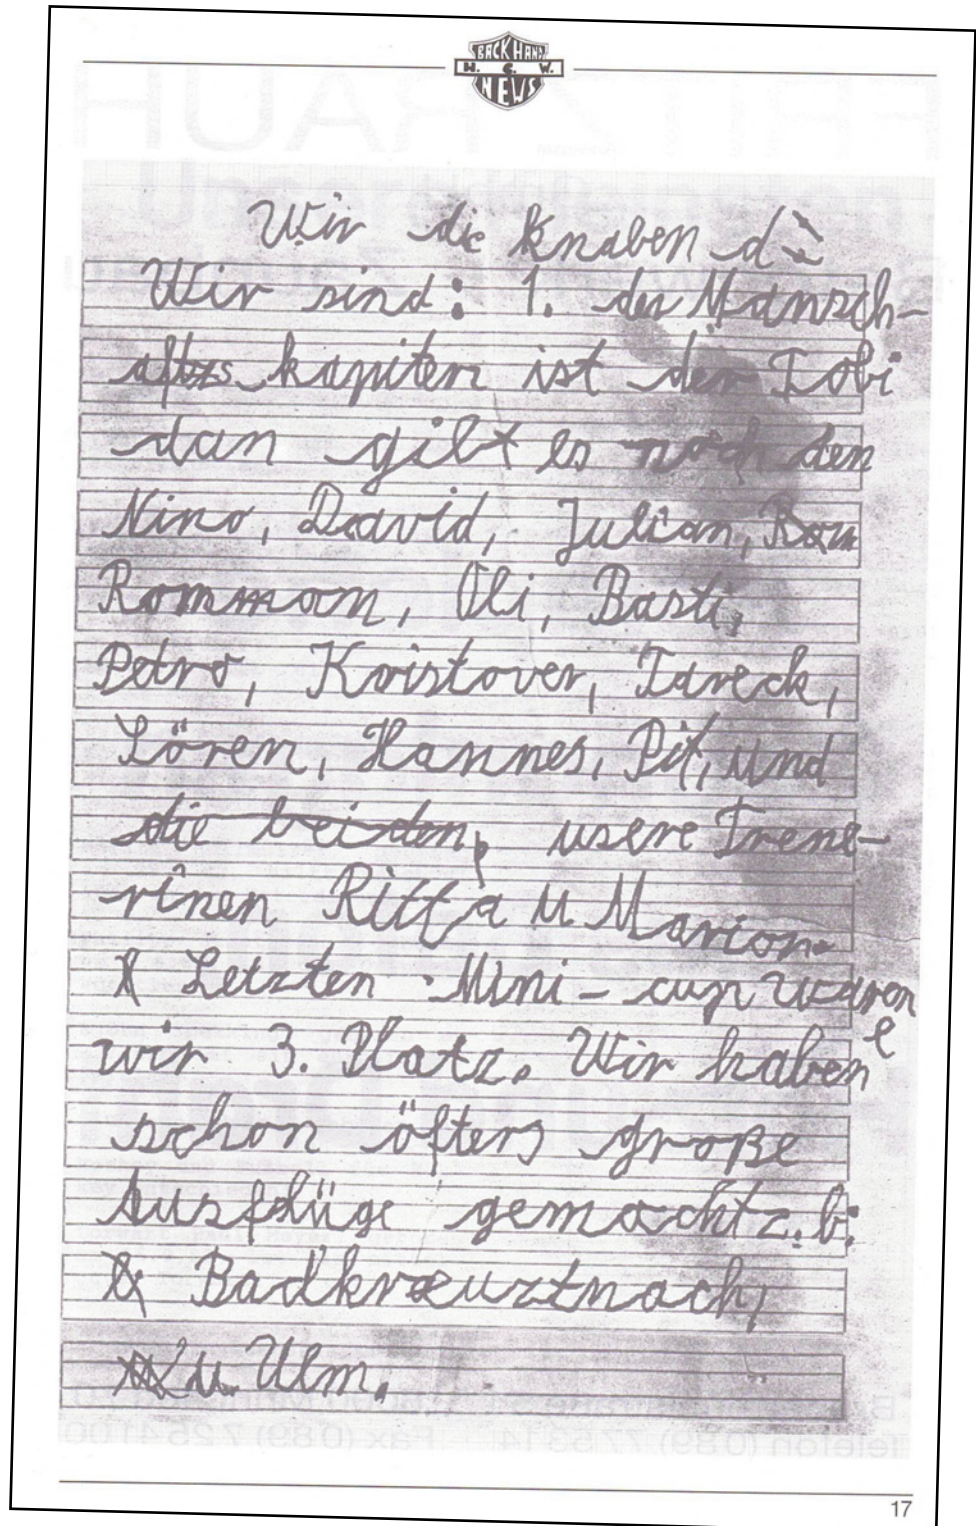 BACK HAND
H. C. W.
NEWS
Wir die Knaben d
Wir sind: 1. der Mansch-
aftzs kapiten ist der Tobi
dan gibt es noch den
Nino, David, Julian, Rom
Rommom, Oli, Basti,
Petro, Kristover, Tareck,
Lören, Hannes, Pit, und
die beiden, usere Trene-
rinen Ritta u Marion
Letzten Mini-cup waren
wir 3. Platz. Wir haben
schon öfters große
Ausflüge gemacht z.b:
Badkreuztnach,
u. Ulm.
17